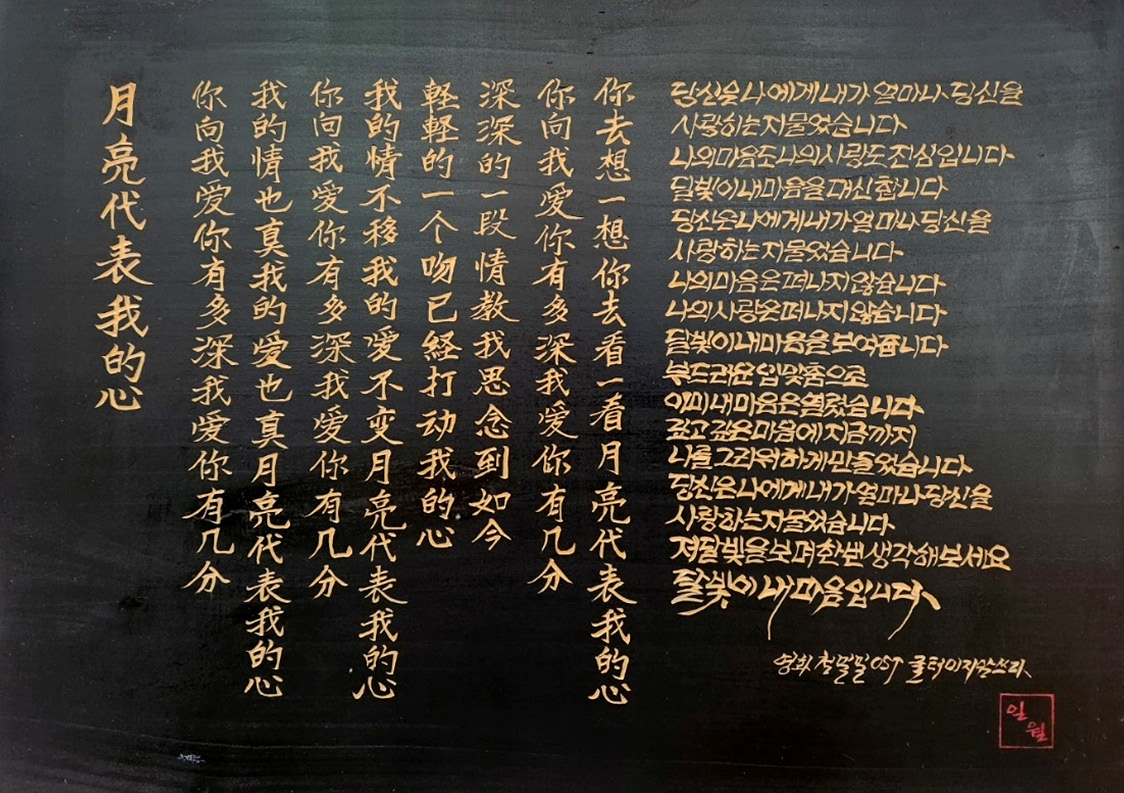 月亮代表我的心
你向我爱你有多深我爱你有几分
我的情也真我的爱也真月亮代表我的心
你向我爱你有多深我爱你有几分
我的情不移我的爱不变月亮代表我的心
軽軽的一个吻已経打动我的心
深深的一段情教我思念到如今
你向我爱你有多深我爱你有几分
你去想一想你去看一看月亮代表我的心
당신은 나에게 내가 얼마나 당신을
사랑하는지 물었습니다
나의 마음도 나의 사랑도 진심입니다
달빛이 내 마음을 대신합니다
당신은 나에게 내가 얼마나 당신을
사랑하는지 물었습니다
나의 마음은 떠나지 않습니다
나의 사랑은 떠나지 않습니다
달빛이 내 마음을 보여줍니다
부드러운 입맞춤으로
이미 내 마음은 열렸습니다
깊고 깊은 마음에 지금까지
나를 그리워하게 만들었습니다
당신은 나에게 내가 얼마나 당신을
사랑하는지 물었습니다
저 달빛을 보며 한번 생각해 보세요
달빛이 내 마음입니다
영화 첨밀밀 OST
일월